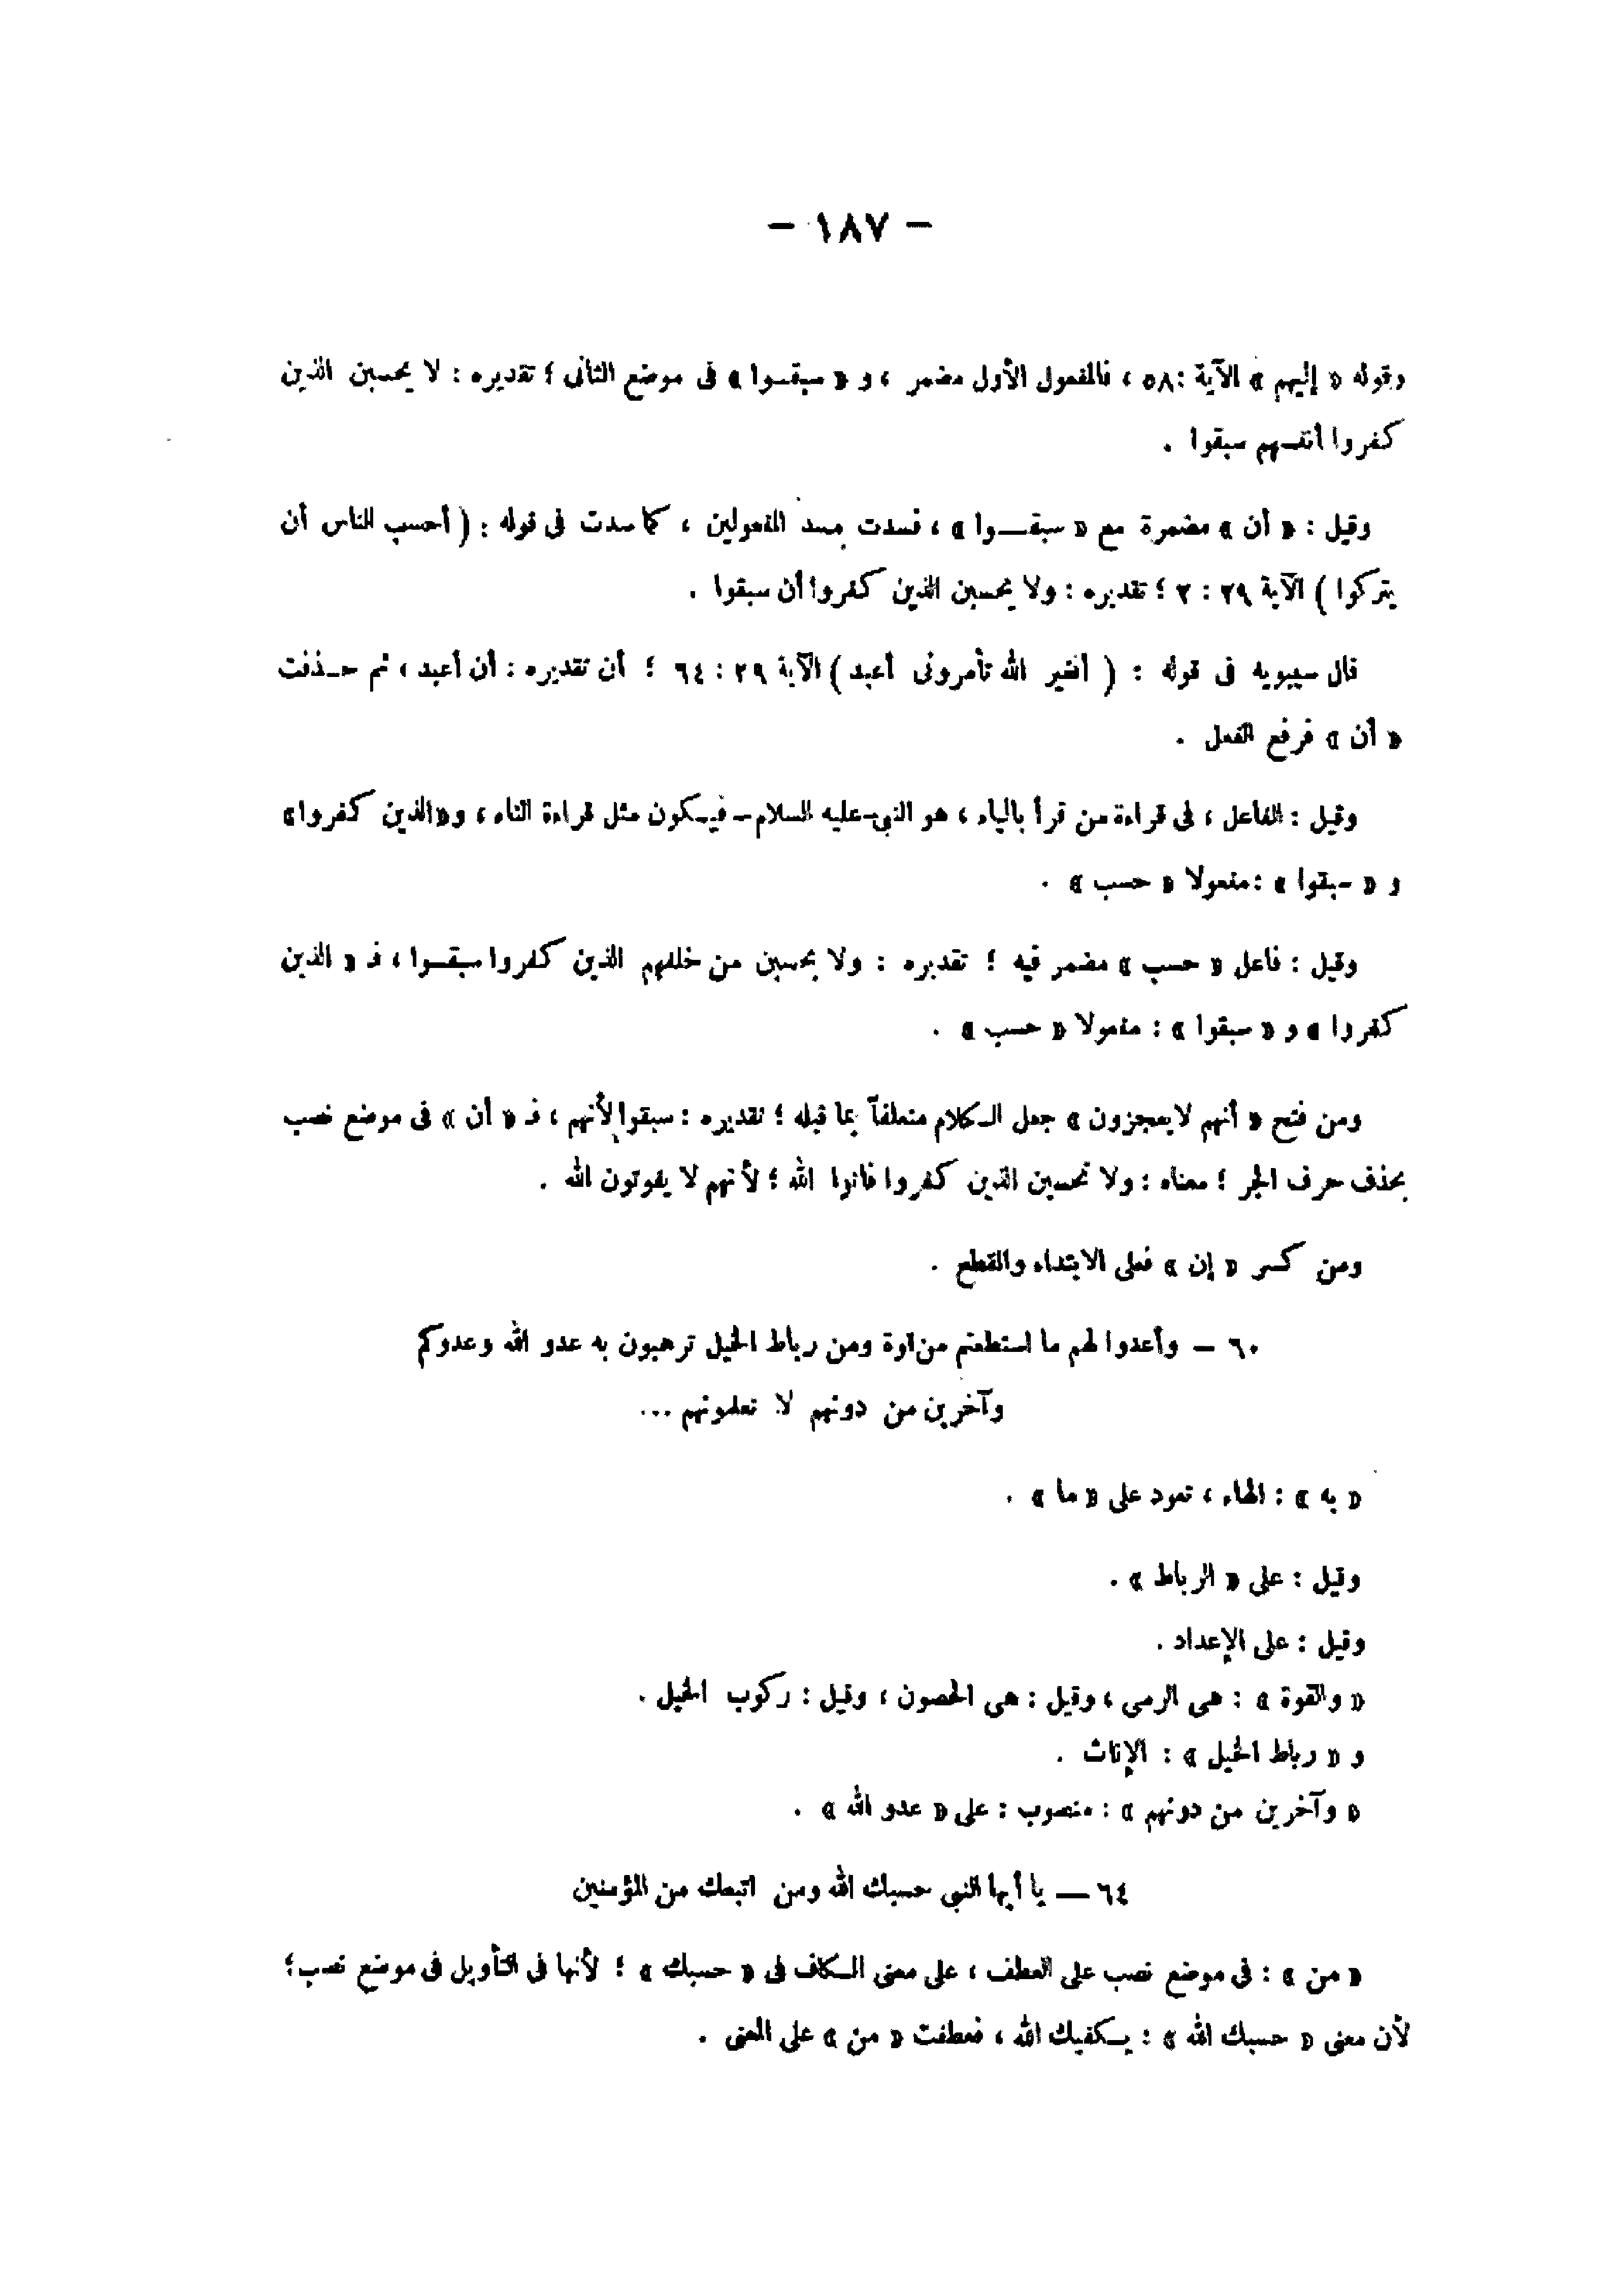 — ١٨٧ —
وقوله « إليهم » الآية :٥٨ ، فالمفعول الأول مضمر ، و « سبقـوا » فى موضع الثانى ؛ تقديره : لا يحسبن الذين
كفروا أنفسهم سبقوا .
وقيل : « أن » مضمرة مع « سبقـــوا » ، فسدت مسد المفعولين ، كما سدت فى قوله : ( أحسب الناس أن
يتركوا ) الآية ٢٩ : ٢ ؛ تقديره : ولا يحسبن الذين كفروا أن سبقوا .
قال سيبويه فى قوله : ( أفغير الله تأمرونى أعبد ) الآية ٢٩ : ٦٤ ؛ أن تقديره : أن أعبد ، ثم حـذفت
« أن » فرفع الفعل .
وقيل : الفاعل ، فى قراءة من قرأ بالياء ، هو النبى–عليه السلام– فيـكون مثل قراءة التاء ، و«الذين كفروا»
و « سبقوا » : مفعولا « حسب » .
وقيل : فاعل « حسب » مضمر فيه ؛ تقديره : ولا يحسبن من خلفهم الذين كفروا سبقـوا ، فـ « الذين
كفروا » و « سبقوا » : مفعولا « حسب » .
ومن فتح « أنهم لا يعجزون » جعل الـكلام متعلقاً بما قبله ؛ تقديره : سبقوا لأنهم ، فـ « أن » فى موضع نصب
بحذف حرف الجر ؛ معناه : ولا تحسبن الذين كفروا فاتوا الله ؛ لأنهم لا يفوتون الله .
ومن كسر « إن » فعلى الابتداء والقطع .
٦٠ — وأعدوا لهم ما استطعتم من قوة ومن رباط الخيل ترهبون به عدو الله وعدوكم
وآخرين من دونهم لا تعلمونهم ...
« به » : الهاء ، تعود على « ما » .
وقيل : على « الرباط » .
وقيل : على الإعداد .
« والقوة » : هى الرمى ، وقيل : هى الحصون ، وقيل : ركوب الخيل .
و « رباط الخيل » : الإناث .
« وآخرين من دونهم » : منصوب : على « عدو الله » .
٦٤ — يا أيها النبى حسبك الله ومن اتبعك من المؤمنين
« من » : فى موضع نصب على العطف ، على معنى الـكاف فى « حسبك » ؛ لأنها فى التأويل فى موضع نصب؛
لأن معنى « حسبك الله » : يـكفيك الله ، فعطفت « من » على المعنى .